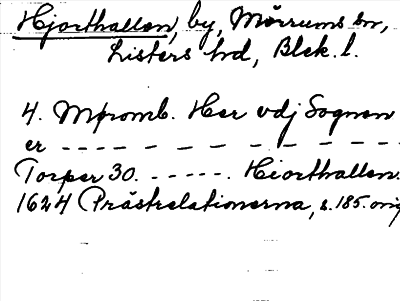 Hjorthallen, by, Mörrums sn,
Listers hd, Blek. l.
4. Mpromb. Her vdj Sognen
er - - - - - - - - - - - -
Torper 30. - - - - - . Hiorthallen.
1624 Prästrelationerna, s. 185. orig